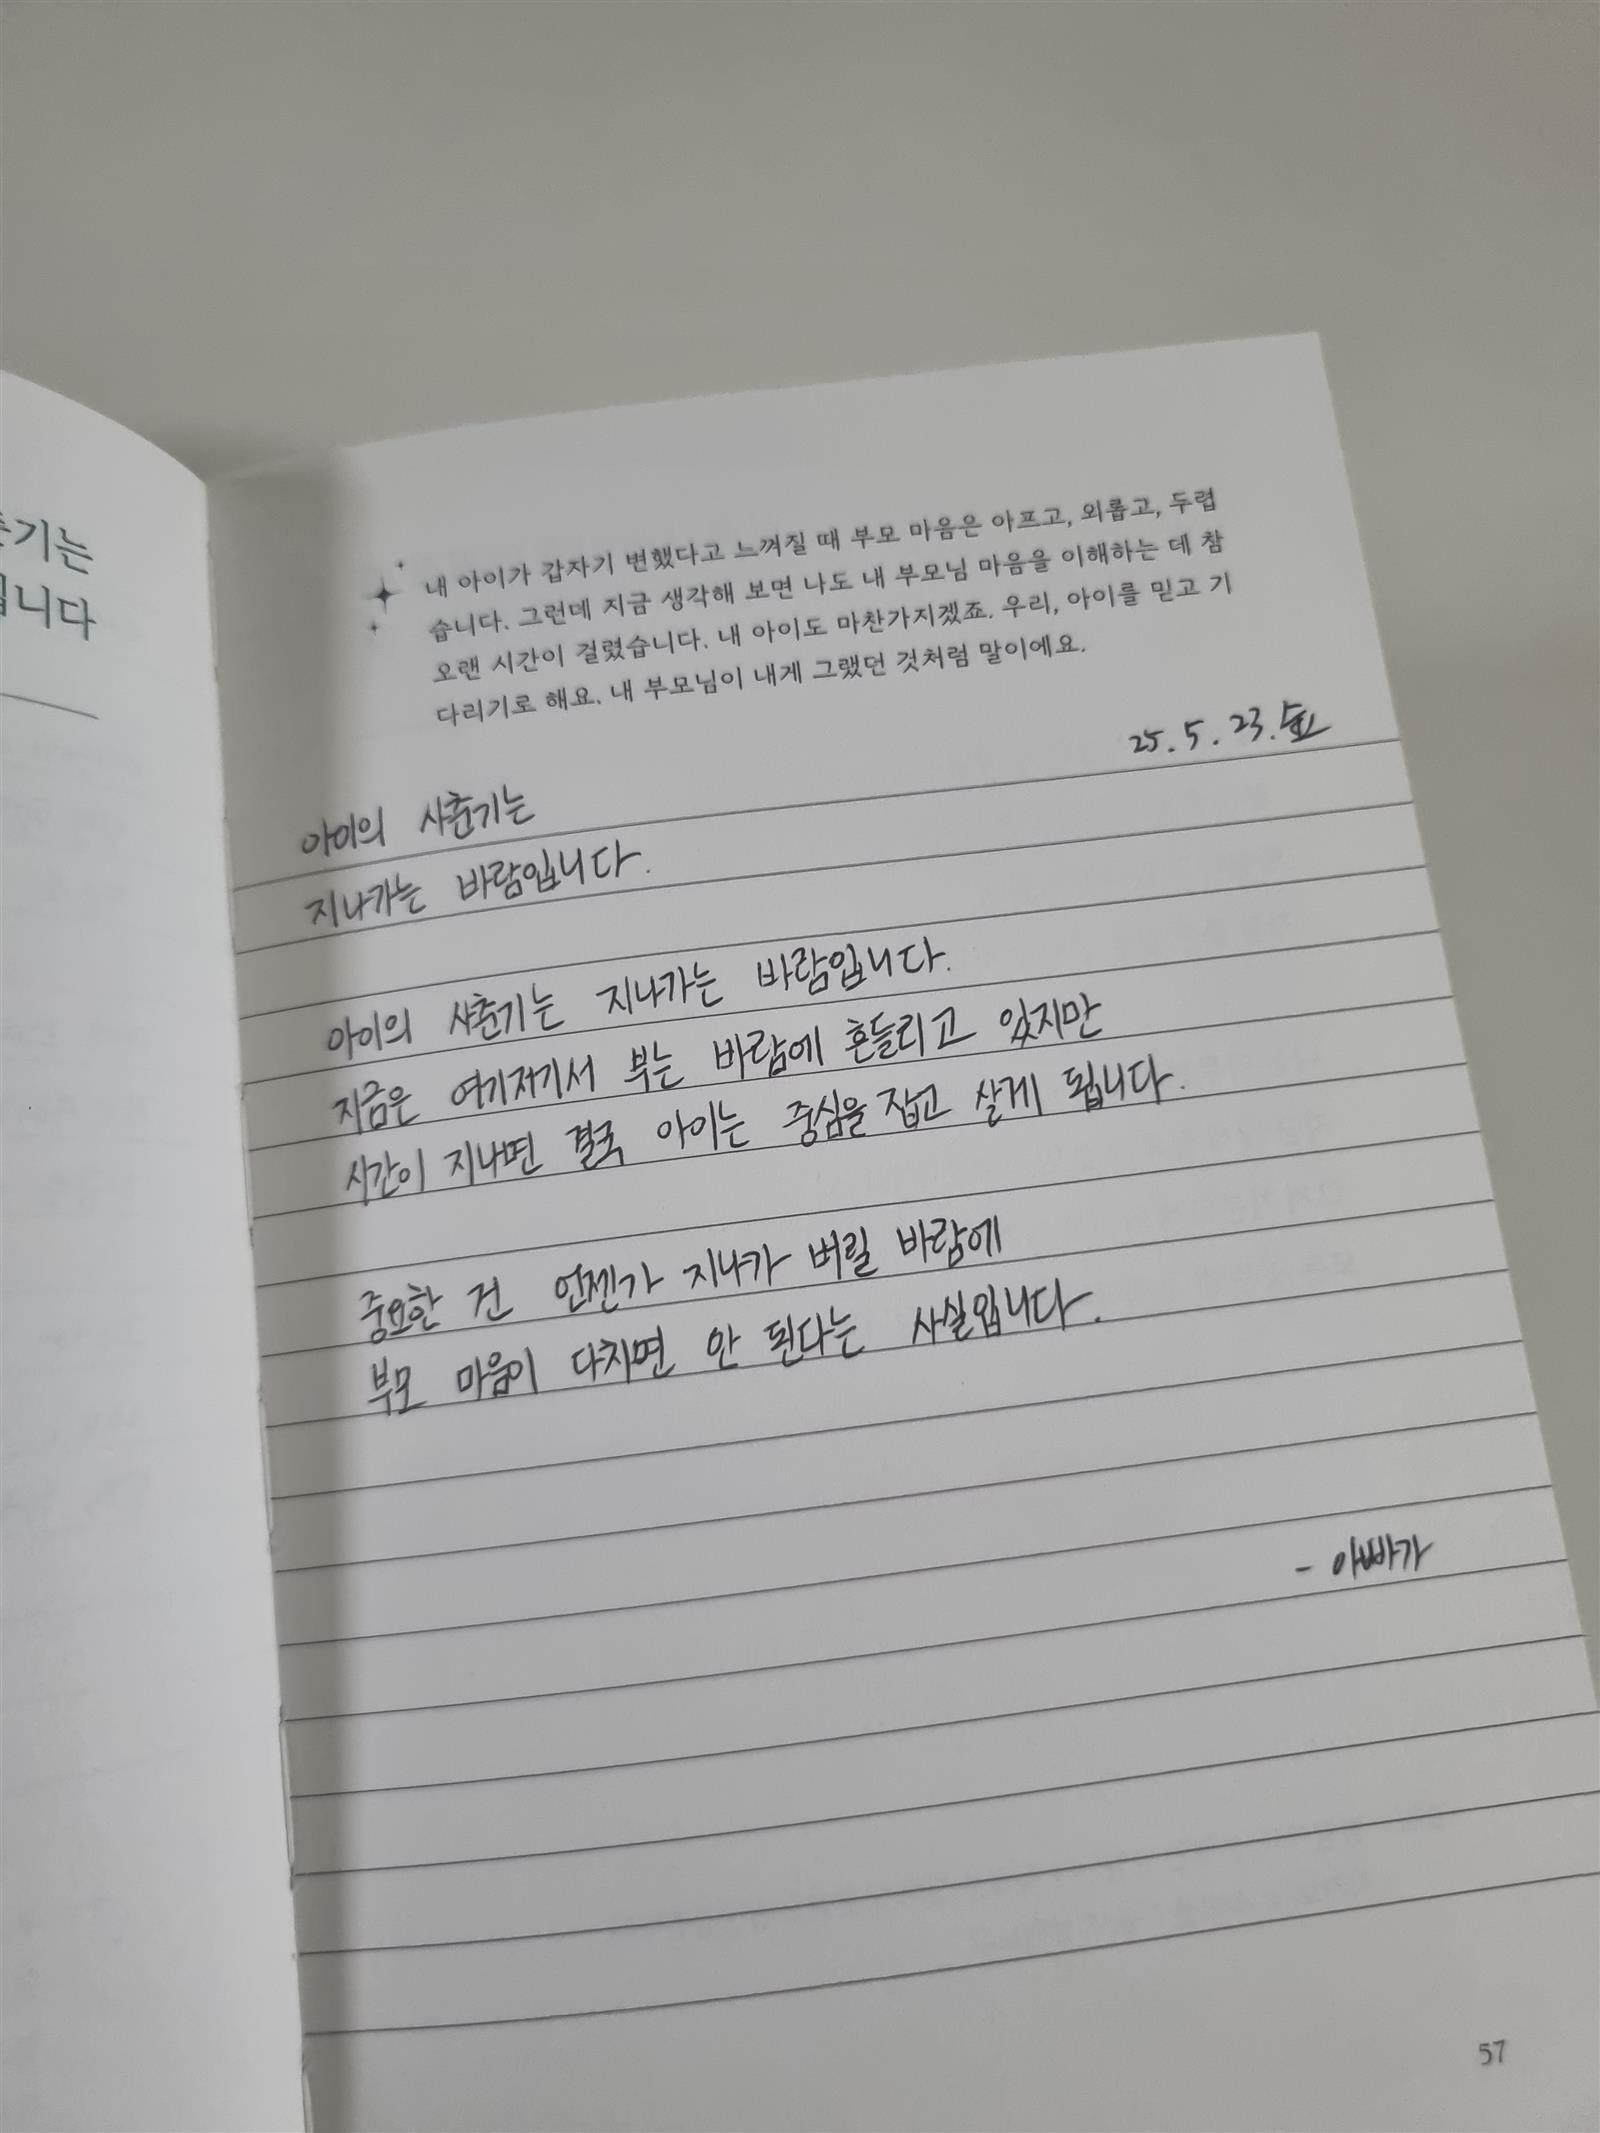 기는
니다
내 아이가 갑자기 변했다고 느껴질 때 부모 마음은 아프고, 외롭고, 두렵
습니다. 그런데 지금 생각해 보면 나도 내 부모님 마음을 이해하는 데 참
오랜 시간이 걸렸습니다. 내 아이도 마찬가지겠죠. 우리, 아이를 믿고 기
다리기로 해요. 내 부모님이 내게 그랬던 것처럼 말이에요.
25. 5. 23. 金
아이의 사춘기는
지나가는 바람입니다.
아이의 사춘기는 지나가는 바람입니다.
지금은 여기저기서 부는 바람에 흔들리고 있지만
시간이 지나면 결국 아이는 중심을 잡고 살게 됩니다.
중요한 건 언젠가 지나가 버릴 바람에
부모 마음이 다치면 안 된다는 사실입니다.
- 아빠가
57